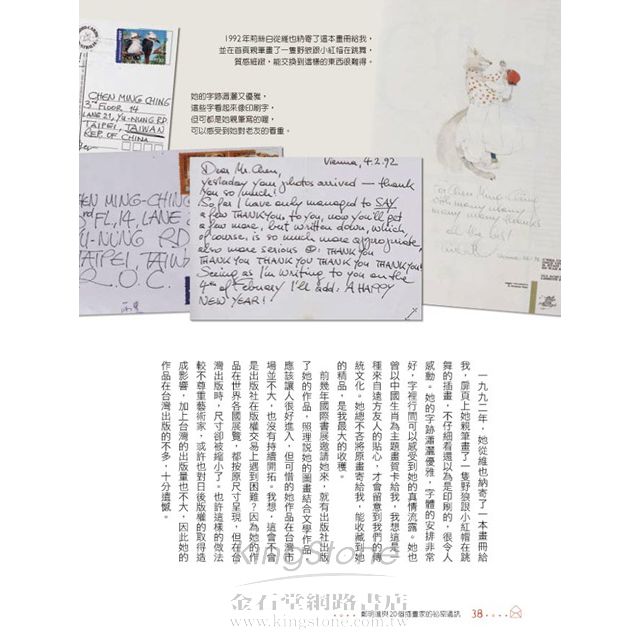 1992年前絲白從維也納寄了這本畫冊給我，
並在首頁親筆畫了一隻野狼跟小紅帽在跳舞，
質感細緻，能交換到這樣的東西很難得。
她的字跡瀟灑又優雅，
這些字看起來像印刷字，
但可都是她親筆寫的喔，
可以感受到她對老友的看重。
CHEN MING CHING
3rd FLOOR 14
LANE 21, YU-NUNG RD
TAIPEI, TAIWAN
REP. OF CHINA
EN MING-CHING
FL, 14, LANE
U-NUNG RD
TAIPEI, TAIW
R.O.C.
Vienna, 4.2.92
Dear Mr. Chen,
yesterday your photos arrived — thank
you so much!
So far I have only managed to SAY
a few THANK YOU, to you, now you'll get
a few more, but written down, which,
of course, is so much more appropriate,
also more serious: THANK YOU
THANK YOU THANK YOU THANK YOU THANK YOU!
Seeing as I'm writing to you on the
4th of February I'll add: A HAPPY
NEW YEAR!
For Chen Ming-Ching
with many many
many many thanks
all the best
一九九二年，她從維也納寄了一本畫冊給
我，扉頁上她親筆畫了一隻野狼跟小紅帽在跳
舞的插畫，不仔細看還以為是印刷的，很令人
感動。她的字跡瀟灑優雅，字體的安排非常
好，字裡行間可以感受到她的真情流露。她也
曾以中國生肖為主題畫賀卡給我，我想這是一
種來自遠方友人的貼心，才會留意到我們的傳
統文化。她總不吝將原畫寄給我，能收藏到她
的精品，是我最大的收穫。
前幾年國際書展邀請她來，就有出版社出
了她的作品，照理說她的圖畫結合文學作品，
應該讓人很好進入，但可惜的她作品在台灣市
場並不大，也沒有持續開拓。我想，這會不會
是出版社在版權交易上遇到困難？因為她的作
品在世界各國展覽，都按原尺寸呈現，但在台
灣出版時，尺寸卻被縮小了。也許這樣的做法
較不尊重藝術家，或許也對日後版權的取得造
成影響，加上台灣的出版量也不大，因此她的
作品在台灣出版的不多，十分遺憾。
kingStone
金石堂網路書店
www.kingstone.com.tw
鄭明進與20個插畫家的祕密通訊 38